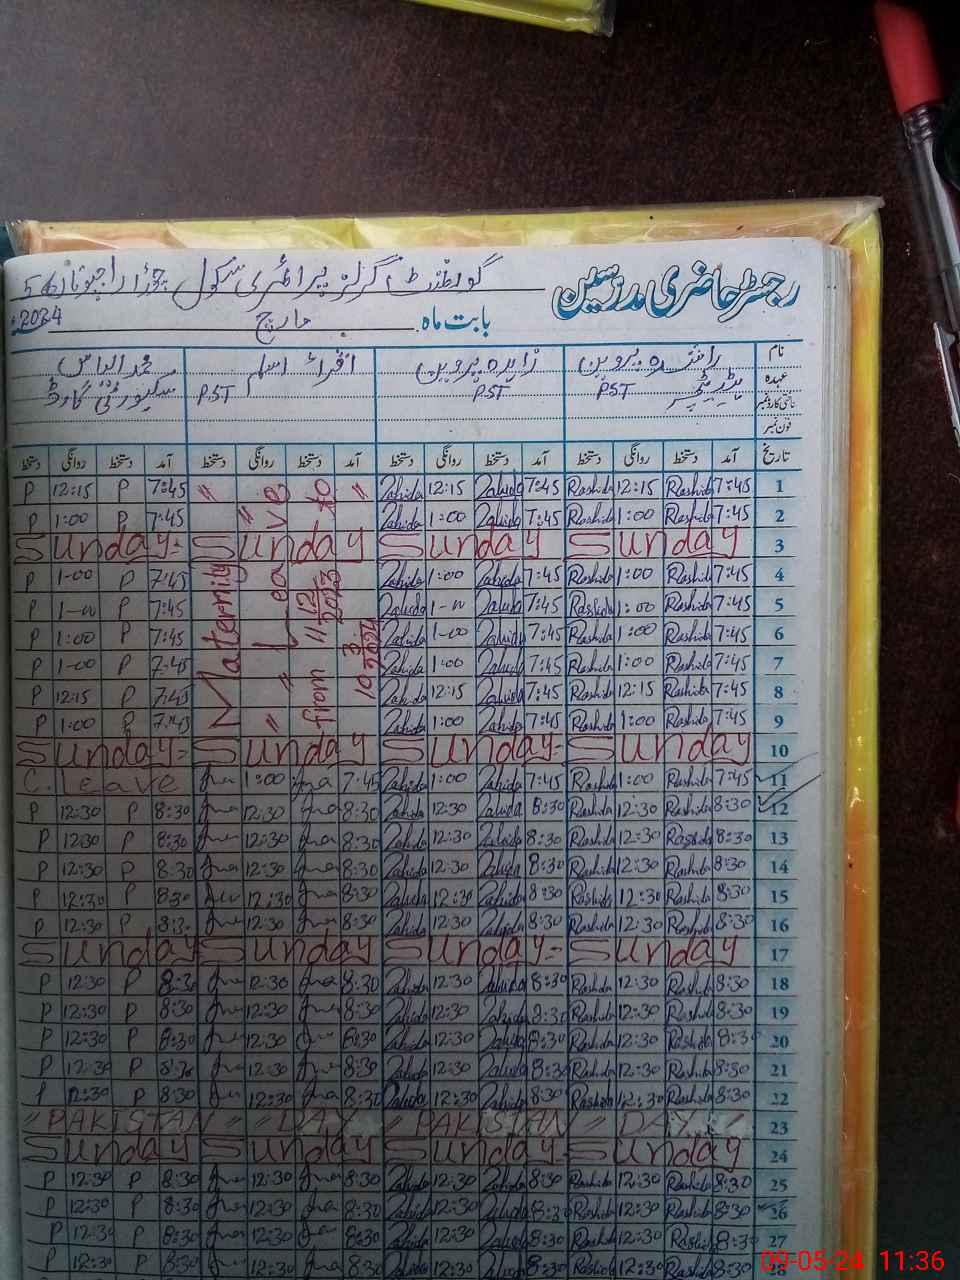 رجسٹر حاضری مدرسین
گورنمنٹ گرلز پرائمری سکول
بابت ماہ مارچ 2024
نام راشدہ پروین زاہدہ پروین اقراء اسلم محمد الیاس
عہدہ PST PST PST سیکیورٹی گارڈ
فون نمبر
تاریخ آمد دستخط روانگی دستخط آمد دستخط روانگی دستخط آمد دستخط روانگی دستخط آمد دستخط روانگی دستخط
1 7:45 Rashida 12:15 Rashida 7:45 Zahida 12:15 Zahida 7:45 P 12:15 P
2 7:45 Rashida 1:00 Rashida 7:45 Zahida 1:00 Zahida 7:45 P 1:00 P
3 Sunday Sunday Sunday Sunday
4 7:45 Rashida 1:00 Rashida 7:45 Zahida 1:00 Zahida 7:45 P 1-00 P
5 7:45 Rashida 1:00 Rashida 7:45 Zahida 7:45 P P
6 7:45 Rashida 1:00 Rashida 7:45 Zahida 1-00 Zahida 7:45 P 1:00 P
7 7:45 Rashida 1:00 Rashida 7:45 Zahida 1:00 Zahida 7:45 P 1-00 P
8 7:45 Rashida 12:15 Rashida 7:45 Zahida 12:15 Zahida 7:45 P 12:15 P
9 7:45 Rashida 1:00 Rashida 7:45 Zahida 1:00 Zahida 7:45 P 1:00 P
Maternity Leave from 11 12 2023 to 10 3 2024
10 Sunday Sunday Sunday Sunday
11 7:45 Rashida 1:00 Rashida 7:45 Zahida 1:00 Zahida 7:45 1:00 C. Leave
12 8:30 Rashida 12:30 Rashida 8:30 Zahida 12:30 Zahida 8:30 12:30 8:30 P 12:30 P
13 8:30 Rashida 12:30 Rashida 8:30 Zahida 12:30 Zahida 8:30 12:30 8:30 P 12:30 P
14 8:30 Rashida 12:30 Rashida 8:30 Zahida 12:30 Zahida 8:30 12:30 8:30 P 12:30 P
15 8:30 Rashida 12:30 Rashida 8:30 Zahida 12:30 Zahida 8:30 12:30 8:30 P 12:30 P
16 8:30 Rashida 12:30 Rashida 8:30 Zahida 12:30 Zahida 8:30 12:30 P 12:30 P
17 Sunday Sunday Sunday Sunday
18 8:30 Rashida 12:30 Rashida 8:30 Zahida 12:30 Zahida 8:30 12:30 8:30 P 12:30 P
19 8:30 Rashida 12:30 Rashida 8:30 Zahida 12:30 Zahida 8:30 12:30 8:30 P 12:30 P
20 8:30 Rashida 12:30 Rashida 8:30 Zahida 12:30 Zahida 8:30 12:30 8:30 P 12:30 P
21 8:30 Rashida 12:30 Rashida 8:30 Zahida 12:30 Zahida 8:30 12:30 8:30 P 12:30 P
22 8:30 Rashida 12:30 Rashida 8:30 Zahida 12:30 Zahida 8:30 12:30 8:30 P 12:30
23 PAKISTAN DAY PAKISTAN DAY
24 Sunday Sunday Sunday Sunday
25 8:30 Rashida 12:30 Rashida 8:30 Zahida 12:30 Zahida 8:30 12:30 8:30 P 12:30 P
26 8:30 Rashida 12:30 Rashida 8:30 Zahida 12:30 Zahida 8:30 12:30 8:30 P 12:30 P
27 8:30 Rashida 12:30 Rashida 8:30 Zahida 12:30 Zahida 8:30 12:30 8:30 P 12:30 P
8:30 Rashida 12:30 Rashida 8:30 Zahida 12:30 Zahida 8:30 12:30 8:30 P 12:30 P
09-05-24 11:36